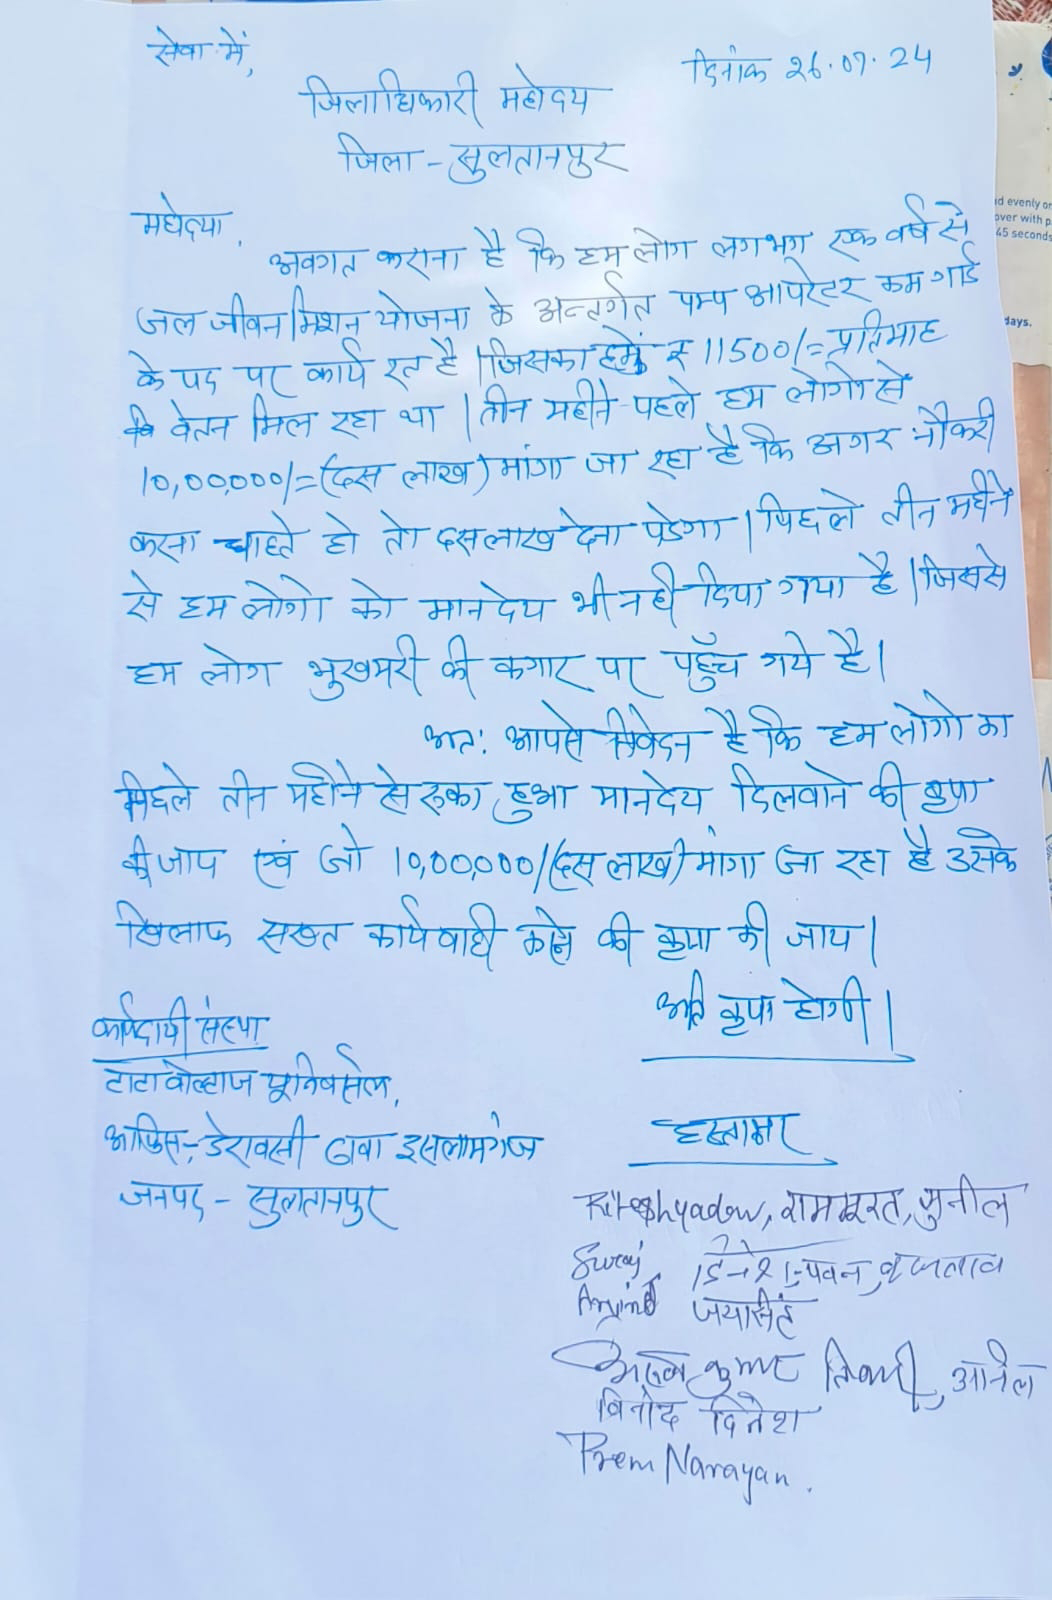 सेवा में,
दिनांक 26.07.24
जिलाधिकारी महोदय
जिला - सुलतानपुर
महोदया,
अवगत कराना है कि हम लोग लगभग एक वर्ष से
जल जीवन मिशन योजना के अन्तर्गत पम्प आपरेटर कम गार्ड
के पद पर कार्य रत है। जिसका हमें ₹ 11500/= प्रतिमाह
वेतन मिल रहा था। तीन महीने पहले हम लोगो से
10,00,000/= (दस लाख) मांगा जा रहा है कि अगर नौकरी
करना चाहते हो तो दस लाख देना पडेगा। पिछले तीन महीने
से हम लोगो को मानदेय भी नही दिया गया है। जिससे
हम लोग भुखमरी की कगार पर पहुँच गये है।
अतः आपसे निवेदन है कि हम लोगो का
पिछले तीन महीने से रुका हुआ मानदेय दिलवाने की कृपा
की जाय एवं जो 10,00,000/ (दस लाख) मांगा जा रहा है उसके
खिलाफ सख्त कार्यवाही करने की कृपा की जाय।
अति कृपा होगी।
कार्यदायी संस्था
टाटा वोल्टाज यूनिवर्सल,
आफिस - डेरावसी ढावा इसलामगंज
जनपद - सुलतानपुर
हस्ताक्षर
Ritesh yadav, राम सूरत, सुनील
Suraj, पवन,
Arvind जयसिंह
कुमार तिवारी, अनिल
विनोद दिनेश
Prem Narayan.
d evenly or
over with p
45 seconds
days.